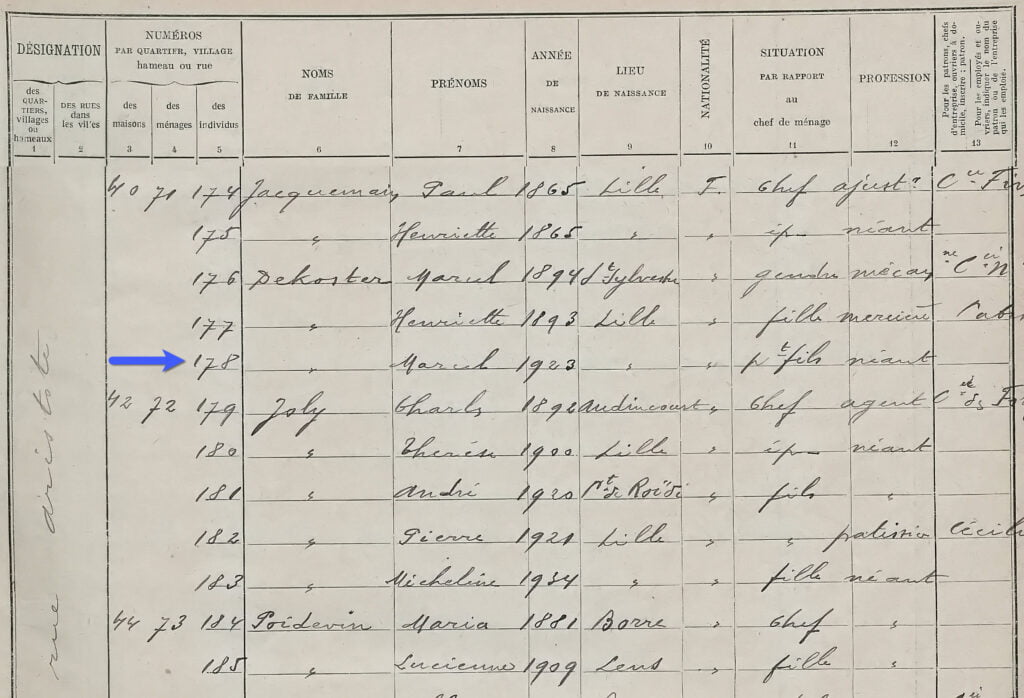 DÉSIGNATION
des QUARTIERS, villages ou hameaux
1
DES RUES dans les villes
2
NUMÉROS
PAR QUARTIER, VILLAGE
hameau ou rue
des maisons
3
des ménages
4
des individus
5
NOMS
DE FAMILLE
6
PRÉNOMS
7
ANNÉE
DE
NAISSANCE
8
LIEU
DE NAISSANCE
9
NATIONALITÉ
10
SITUATION
PAR RAPPORT
au
chef de ménage
11
PROFESSION
12
Pour les patrons, chefs
d'entreprise, ouvriers à do-
micile, inscrire : patron.
Pour les employés et ou-
vriers, indiquer le nom du
patron ou de l'entreprise
qui les emploie.
13
rue aristote
40 71 174 Jacquemain Paul 1865 Lille F. Chef ajustr
175 " Henriette 1865 " " ép néant
176 Dekoster Marcel 1894 St Sylvestre " gendre mécan
177 " Henriette 1893 Lille " fille mercière
178 " Marcel 1923 " " pt fils néant
42 72 179 Joly Charls 1892 Audincourt " Chef agent
180 " Thérèse 1900 Lille " ép néant
181 " André 1920 " fils "
182 " Pierre 1921 Lille " " patissier Cécil
183 " Micheline 1934 " " fille néant
44 73 184 Poidevin Maria 1881 Borre " Chef "
185 " Lucienne 1909 Lens " fille "